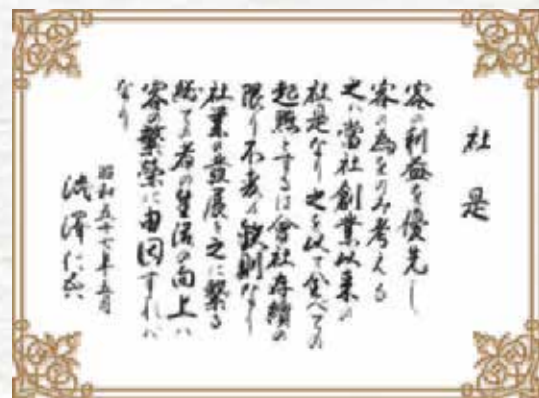 社是
客の利益を優先し
客の為をのみ考える
之ハ當社創業以来の
社是なり之を以て全べての
起点とするは會社存続の
限り不変の鉄則なり
社業の發展と之に繋る
総ての者の生活の向上ハ
客の繁榮に由因すれバ
なり
昭和五十七年五月